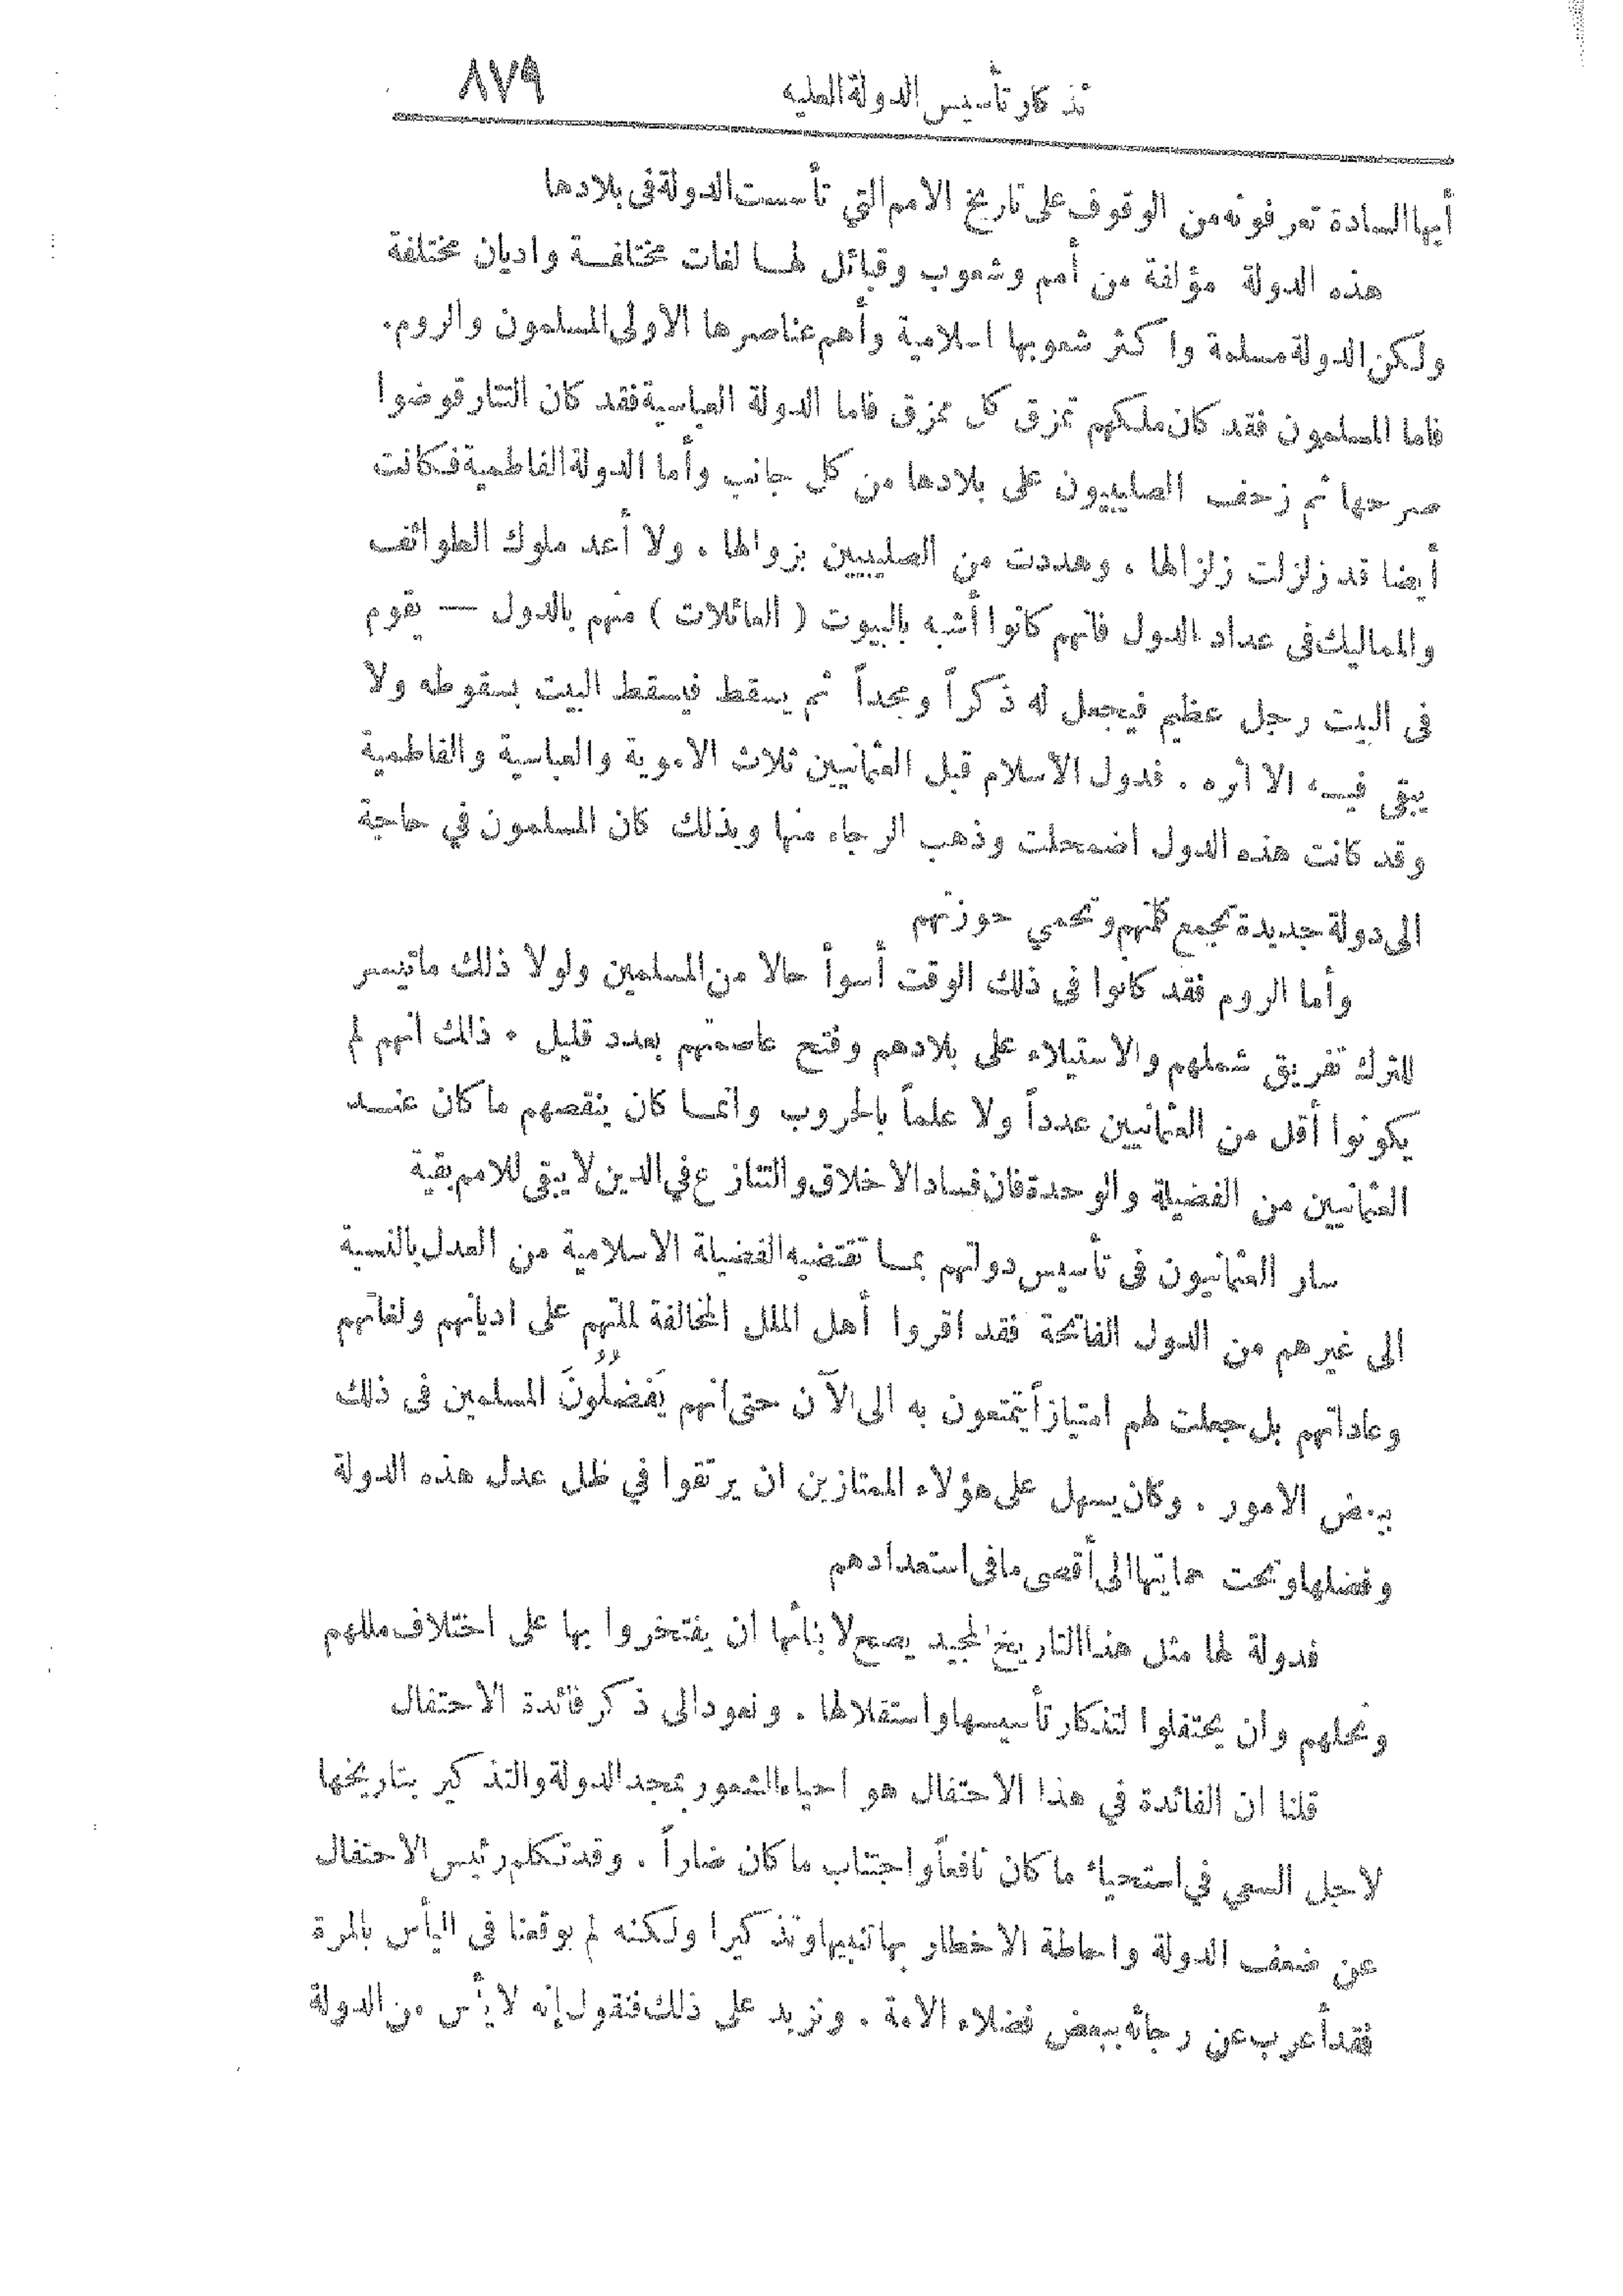 تذكار تأسيس الدولة العليه ٨٧٩
أيها السادة تعرفونه من الوقوف على تاريخ الامم التي تأسست الدولة فى بلادها
هذه الدولة مؤلفة من أمم وشعوب وقبائل لهـا لغات مختلفـة واديان مختلفة
ولكن الدولة مسلمة واكثر شعوبها اسلامية وأهم عناصرها الاولى المسلمون والروم.
فاما المسلمون فقد كان ملكهم تمزق كل ممزق فاما الدولة العباسية فقد كان التتار قوضوا
صرحها ثم زحف الصليبيون على بلادها من كل جانب وأما الدولة الفاطمية فكانت
أيضا قد زلزلت زلزالها ، وهددت من الصليبيين بزوالها . ولا أعد ملوك الطوائف
والمماليك فى عداد الدول فانهم كانوا أشبه بالبيوت ( العائلات ) منهم بالدول — يقوم
فى البيت رجل عظيم فيجعل له ذكراً ومجداً ثم يسقط فيسقط البيت بسقوطه ولا
يبقى فيـه الا اثره . فدول الاسلام قبل العثمانيين ثلاث الاموية والعباسية والفاطمية
وقد كانت هذه الدول اضمحلت وذهب الرجاء منها وبذلك كان المسلمون في حاجة
الى دولة جديدة تجمع كلمتهم وتحمي حوزتهم
وأما الروم فقد كانوا فى ذلك الوقت أسوأ حالا من المسلمين ولولا ذلك ماتيسر
للترك تفريق شملهم والاستيلاء على بلادهم وفتح عاصمتهم بعدد قليل . ذلك انهم لم
يكونوا أقل من العثمانيين عدداً ولا علماً بالحروب وانمـا كان ينقصهم ما كان عنـد
العثمانيين من الفضيلة والوحدة فان فساد الاخلاق والتنازع في الدين لا يبقى للامم بقية
سار العثمانيون فى تأسيس دولتهم بمـا تقتضيه الفضيلة الاسلامية من العدل بالنسبة
الى غيرهم من الدول الفاتحة فقد اقروا أهل الملل المخالفة لملتهم على اديانهم ولغاتهم
وعاداتهم بل جعلت لهم امتيازاً يتمتعون به الى الآن حتى انهم يَفضُلُونَ المسلمين فى ذلك
ببعض الامور . وكان يسهل على هؤلاء الممتازين ان يرتقوا في ظل عدل هذه الدولة
وفضلها وتحت حمايتها الى أقصى ما فى استعدادهم
فدولة لها مثل هذا التاريخ المجيد يصح لابنائها ان يفتخروا بها على اختلاف مللهم
ونحلهم وان يحتفلوا لتذكار تأسيسها واستقلالها . ونعود الى ذكر فائدة الاحتفال
قلنا ان الفائدة في هذا الاحتفال هو احياء الشعور بمجد الدولة والتذكير بتاريخها
لاجل السعي في استحياء ما كان نافعاً واجتناب ما كان ضاراً . وقد تكلم رئيس الاحتفال
عن ضعف الدولة واحاطة الاخطار بها تنبيها وتذكيرا ولكنه لم يوقعنا فى اليأس بالمرة
فقد أعرب عن رجائه ببعض فضلاء الامة . ونزيد على ذلك فنقول إنه لا يأس من الدولة